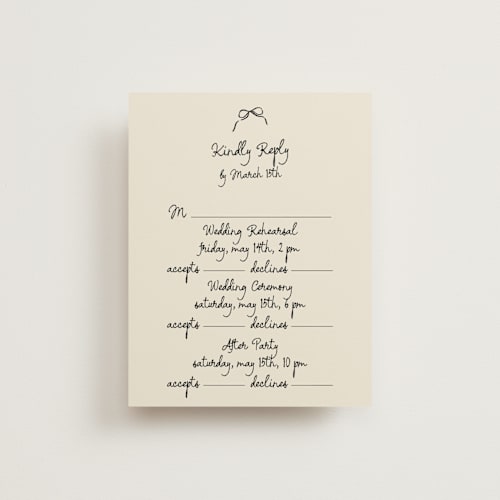 Kindly Reply
by March 15th
M
Wedding Rehearsal
friday, may 14th, 2 pm
accepts declines
Wedding Ceremony
saturday, may 15th, 6 pm
accepts declines
After Party
saturday, may 15th, 10 pm
accepts declines